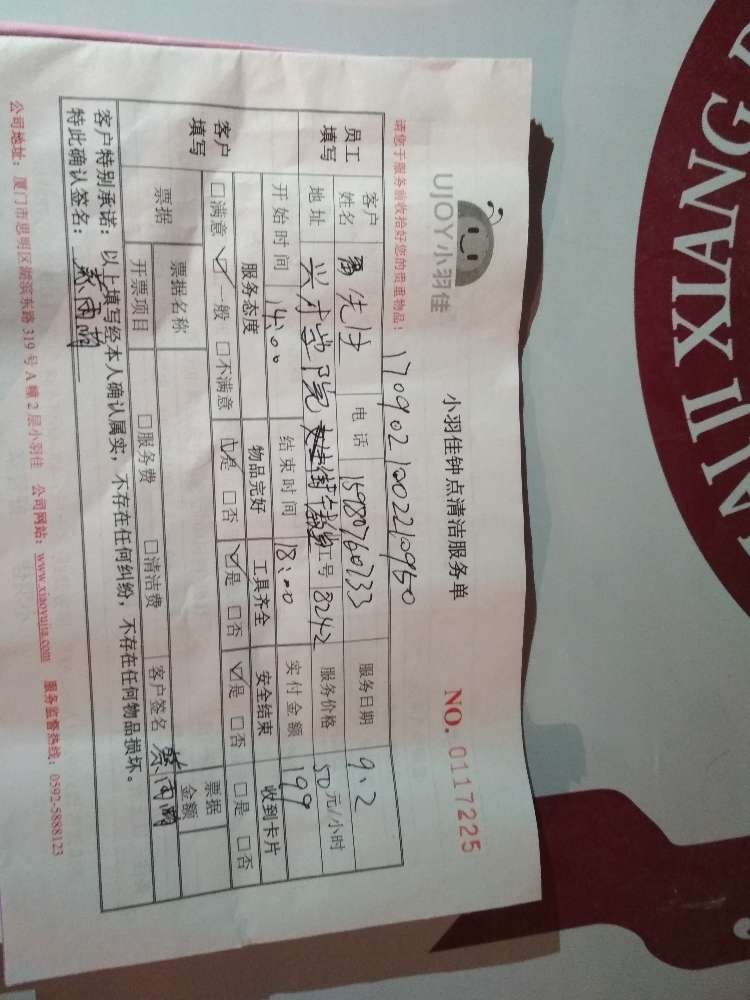 UJOY小羽佳
小羽佳钟点清洁服务单
NO. 0117225
请您于服务前收拾好您的贵重物品!
1709021002210950
员工填写 客户姓名 先生 电话 15980760733 服务日期 9.2
地址 兴才学院 工号 8242 服务价格 50元/小时
开始时间 14:00 结束时间 18:00 实付金额 199
客户填写 服务态度 物品完好 工具齐全 安全结束 收到卡片
□满意 ☑一般 □不满意 ☑是 □否 ☑是 □否 ☑是 □否 □是 □否
票据 票据名称 客户签名 蔡雨 票据金额
开票项目 □服务费 □清洁费
客户特别承诺:以上填写经本人确认属实,不存在任何纠纷,不存在任何物品损坏。
特此确认签名: 蔡雨
公司地址:厦门市思明区湖滨东路319号A幢2层小羽佳 公司网站:www.xiaoyujia.com 服务监督热线:0592-5888123
XIANG